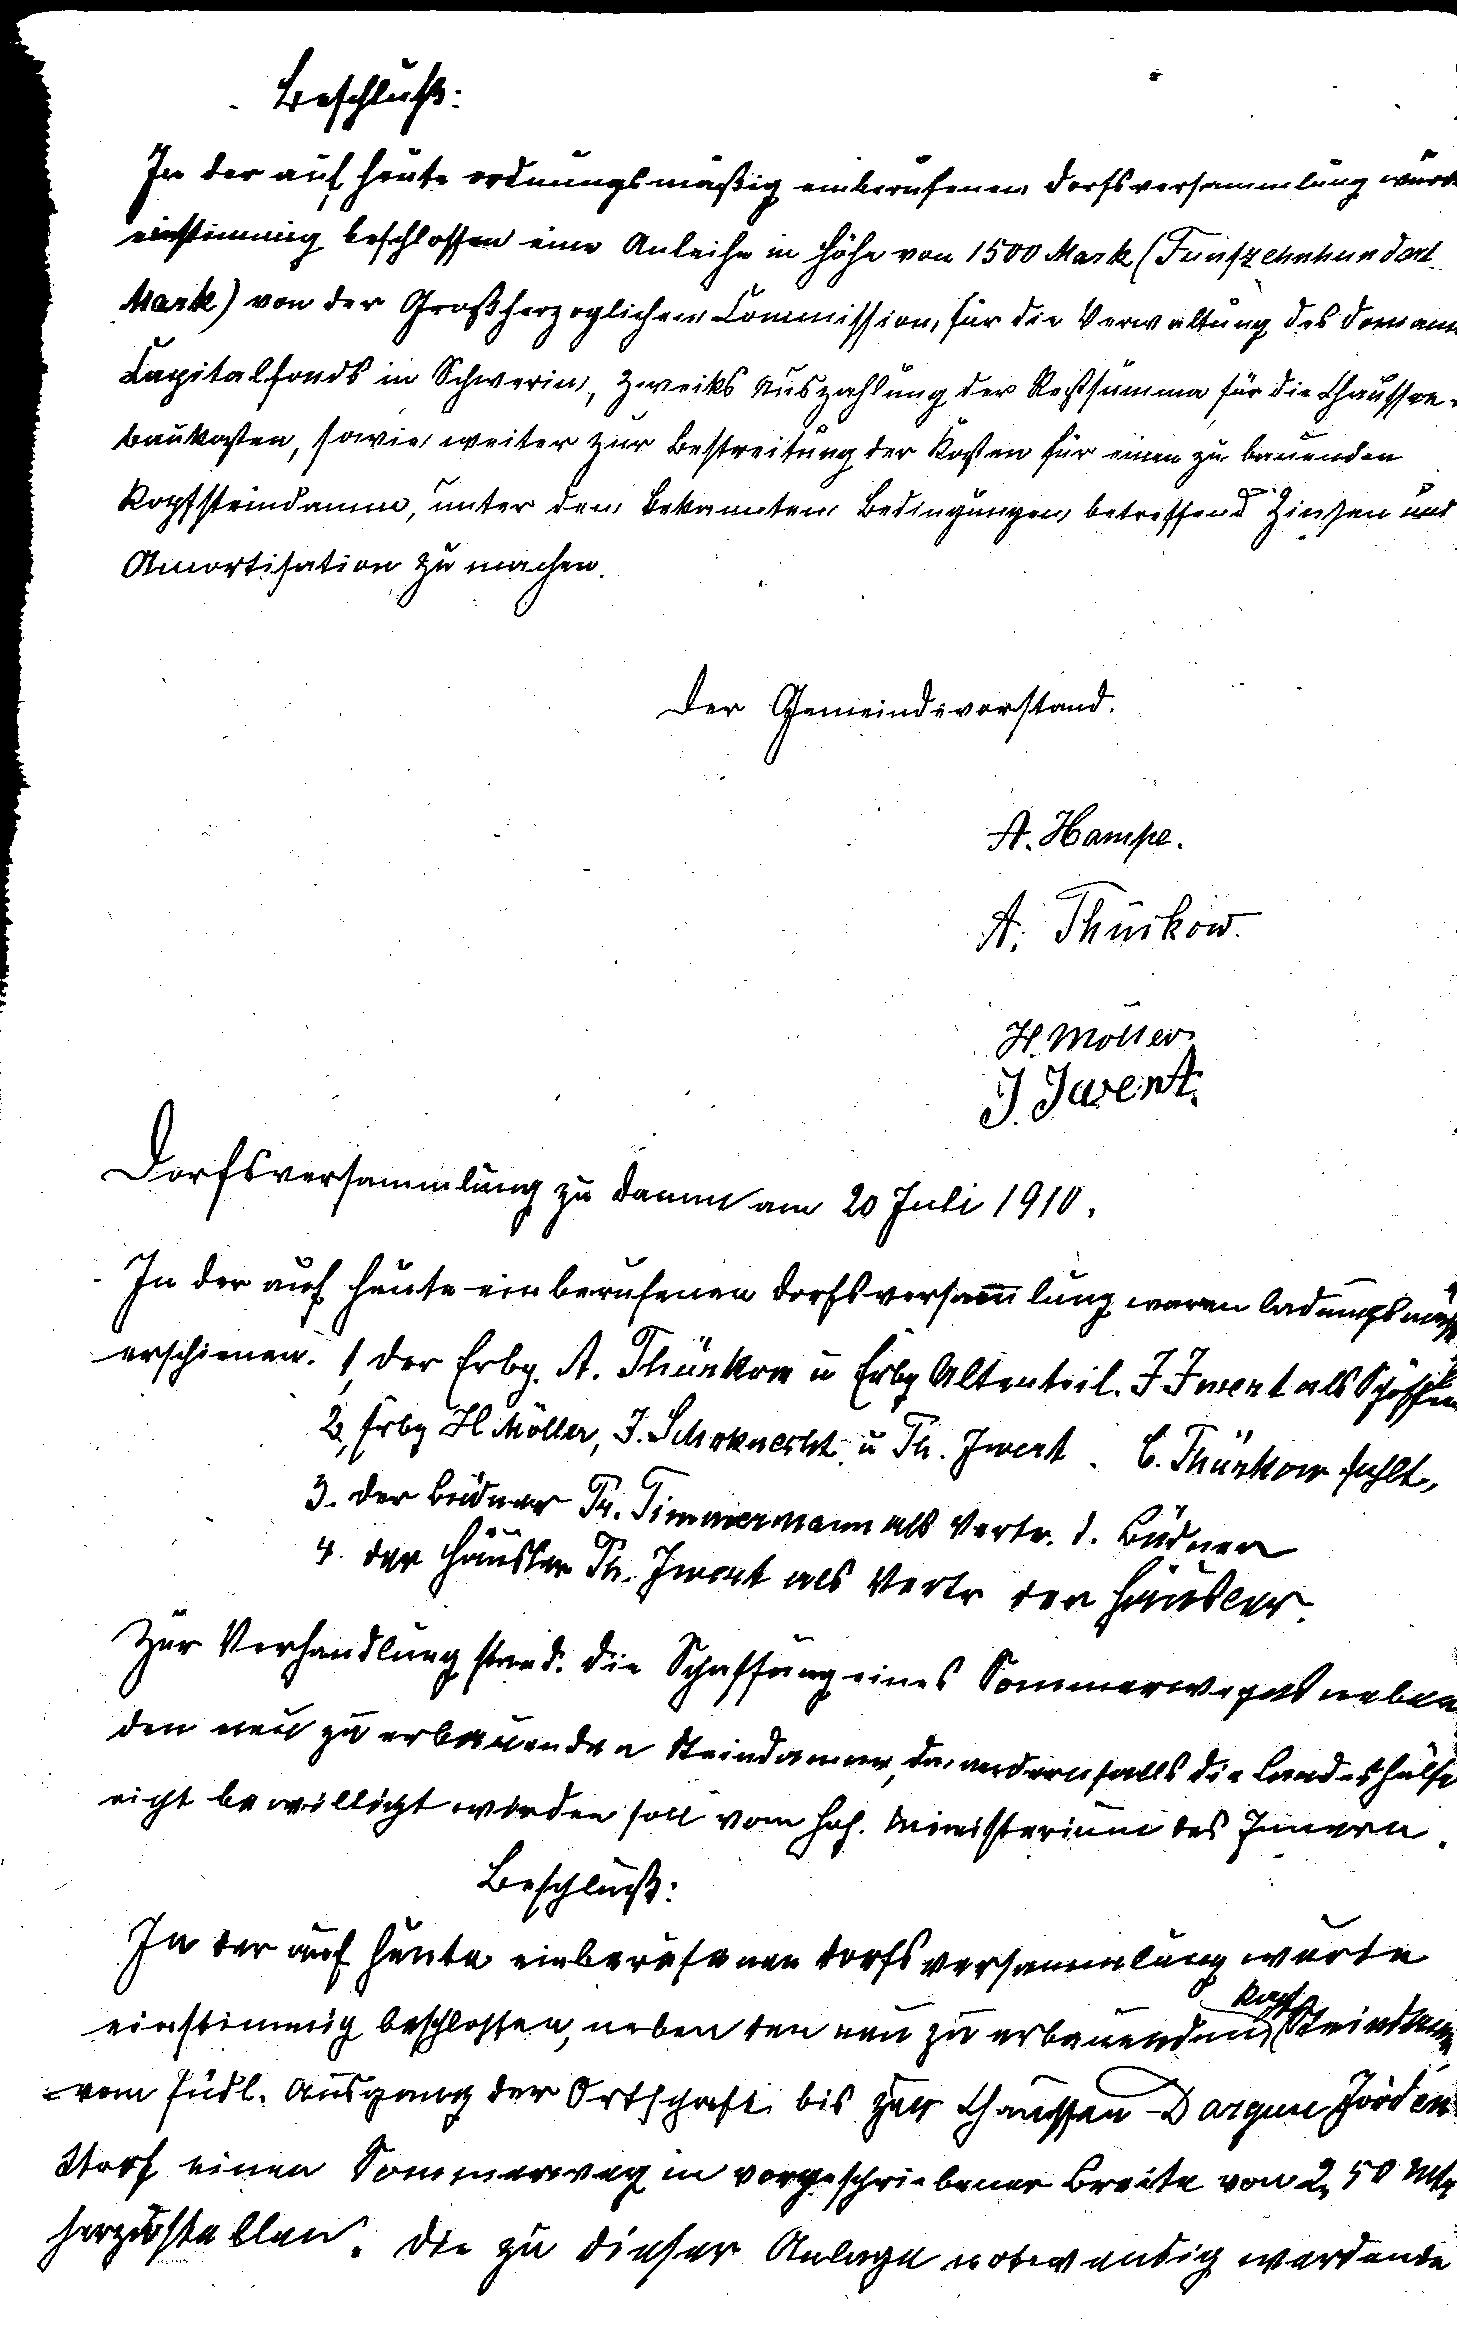 Beschluß:
In der auf heute ordnungsmäßig einberufenen Dorfsversammlung wurde
einstimmig beschlossen eine Anleihe in Höhe von 1500 Mark (Funfzehnhundert
Mark) von der Großherzoglichen Commission, für die Verwaltung des Domanial
Capitalfonds in Schwerin, zweiks Auszahlung der Restsumma für die Chaussee-
baukosten, sowie weiter zur Bestreitung der Kosten für einen zu bauenden
Kopfsteindamm, unter den bekannten Bedingungen betreffend Zinsen und
Amortisation zu machen.
Der Gemeindevorstand.
A. Hampe.
A. Thürkow.
H. Möller
J. Jwent.
Dorfsversammlung zu Damm am 20 Juli 1910.
In der auf heute einberufenen Dorfsversammlung waren ladungsmäß
erschienen. 1, der Erbp. A. Thürkow u Erbp Altenteil. J Jwert als Schöffen
2, Erbp H Möller, J. Schoknecht u Th. Jwert. C. Thürkow fehlt,
3. der Büdner Fr. Timmermann als Vertr. d. Büdner
4. der Häusler Th. Jwert als Vertr der Häusler.
Zur Verhandlung stand: die Schaffung eines Sommerweges neben
den neu zu erbauenden Steindamm, da andernfalls die Landeshülfe
nicht bewilligt würden soll vom hoh. Ministerium des Innern.
Beschluß:
In der auf heute einberufenen Dorfsversammlung wurde
einstimmig beschlossen, neben den neu zu erbauenden Kopf Steindamm
vom südl. Ausgang der Ortschaft bis zur Chaussee Dargun Jörden
storf einen Sommerweg in vorgeschriebener Breite von 2,50 Mtr
herzustellen. Die zu dieser Anlage notwendig werdende